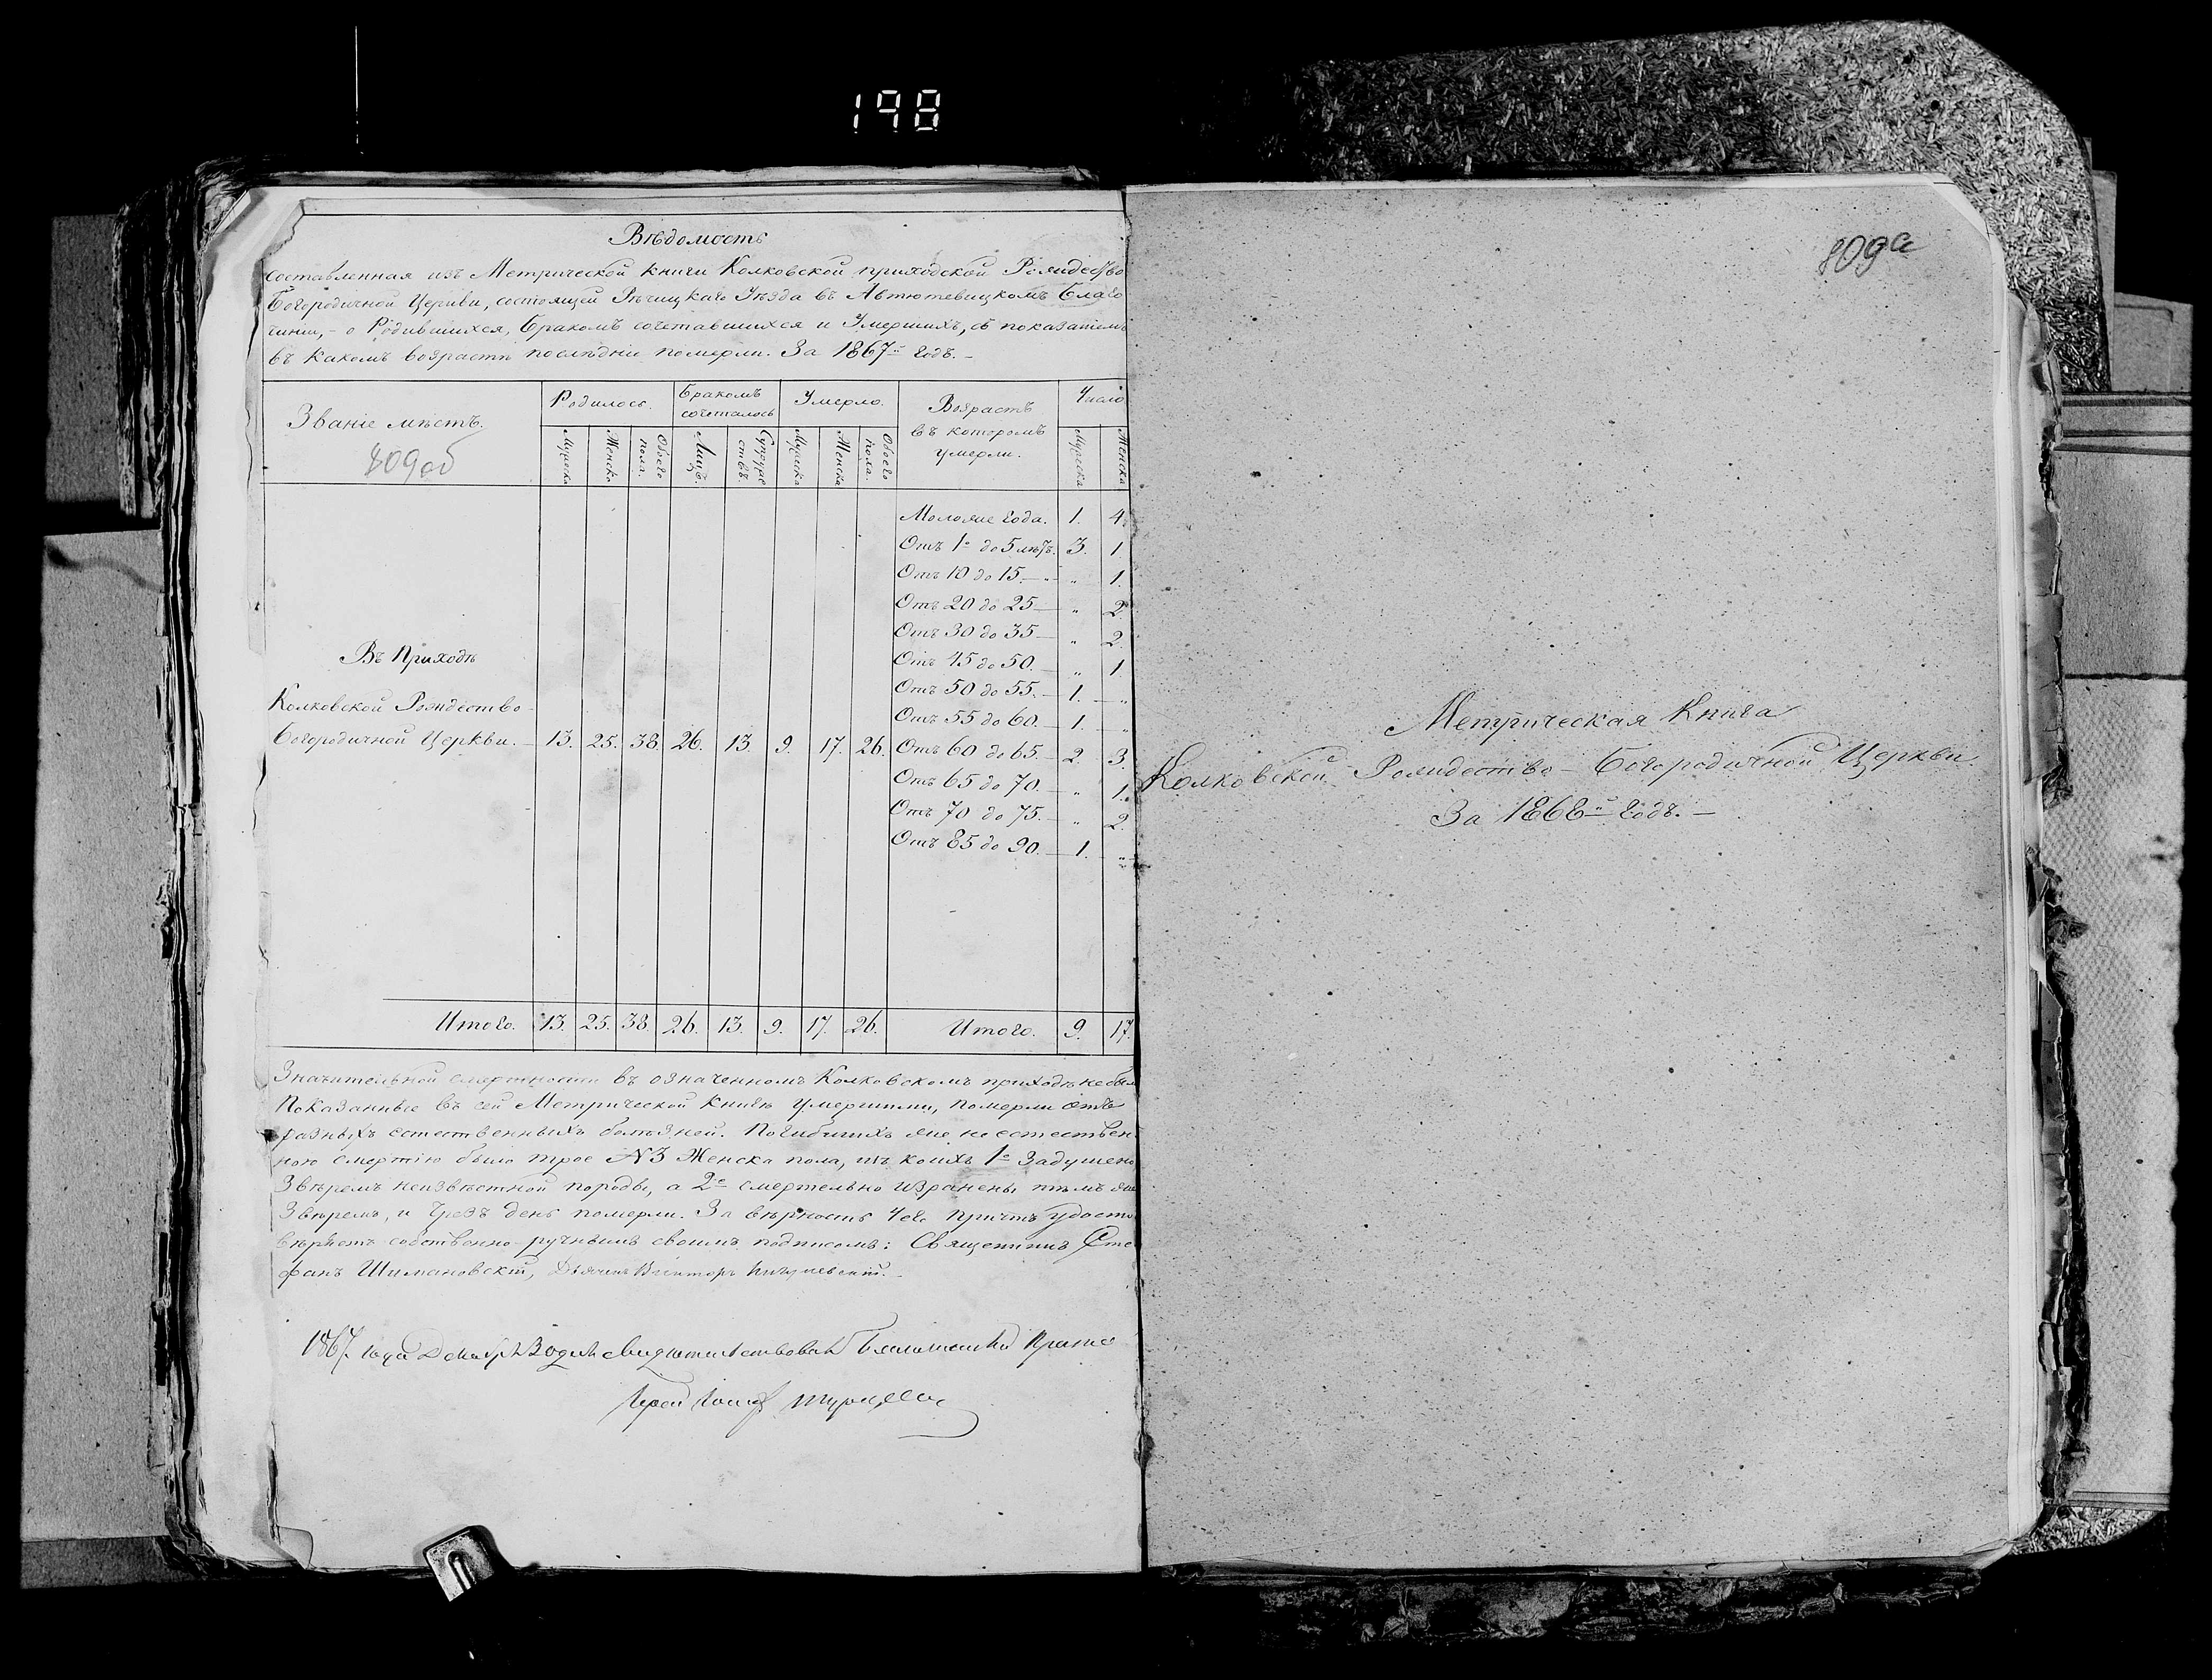 198
Вѣдомость
Составленная изъ Метрической книги Колковской приходской Рождество
Богородичной Церкви, состоящей Рѣчицкаго Уѣзда въ Автютевицкомъ Благо
чиніи, - о Родившихся, бракомъ сочетавшихся и Умершихъ, съ показаніемъ
въ какомъ возрастѣ послѣдніе померли. За 1867й годъ. -
Званіе мѣстъ.
Родилось.
Бракомъ сочеталось
Умерло.
Возрастъ въ которомъ умерли.
Число.
Мужеска
Женска
Обоего пола.
Лицъ.
Супружествъ.
Мужеска
Женска
Обоего пола.
Мужеска
Женска
809об
Моложе года. 1. 4.
Отъ 1о до 5 лѣтъ. 3. 1
Отъ 10 до 15. - " 1.
Отъ 20 до 25 - " 2.
Отъ 30 до 35 - " 2.
Отъ 45 до 50. - " 1.
Отъ 50 до 55. - 1. - "
Отъ 55 до 60. - 1. - "
Отъ 60 до 65. - 2. 3.
Отъ 65 до 70. - " 1.
Отъ 70 до 75. - " 2.
Отъ 85 до 90. - 1. - "
Въ Приходѣ
Колковской Рождество -
Богородичной Церкви. - 13. 25. 38. 26. 13. 9. 17. 26.
Итого. 13. 25. 38. 26. 13. 9. 17. 26. Итого. 9. 17.
Значительной смертности въ означенномъ Колковскомъ приходѣ не был
Показанные въ сей Метрической книгѣ умершими, померли отъ
разныхъ естественныхъ болѣзней. Погибшихъ же не естествен
ною смертію было трое N3 Женска пола, изъ коихъ 1е Задушено
Звѣремъ неизвѣстной породы, а 2е смертельно изранены тѣмъ же
Звѣремъ, и чрезъ день померли. За вѣрность чего Причтъ удосто
вѣряетъ собственно-ручнымъ своимъ подписомъ: Священникъ Сте
фанъ Шимановскій, Дьячекъ Викторъ
1867. года Декабря 30 дня свидѣтельствовалъ
Іерей
809а
Метрическая Книга
Колковской Рождество - Богородичной Церкви.
За 1868й годъ. -